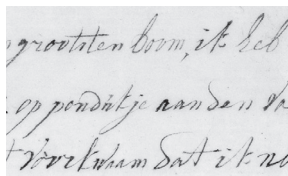 grootsten boom, ik heb
op pondútje aan den
voorkwam dat ik